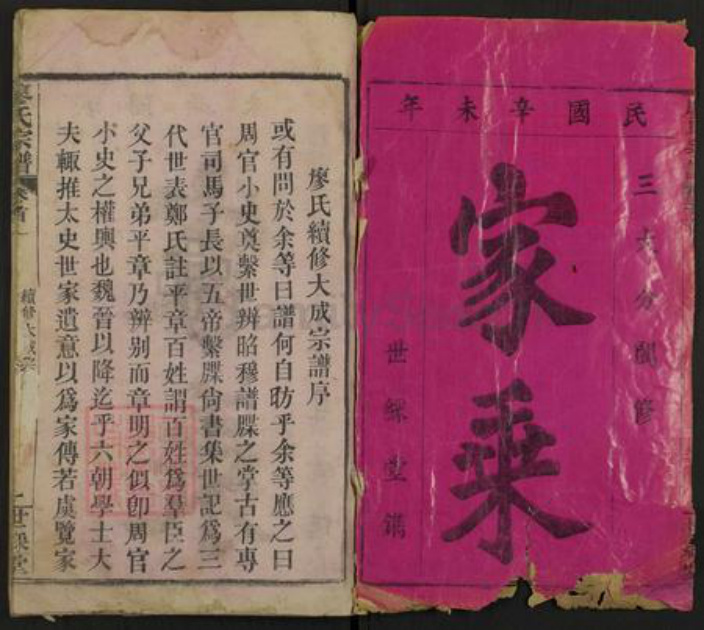 民國辛未年
三大分關修
家乘
世綵堂鐫
廖氏續修大成宗譜序
或有問於余等曰譜何自昉乎余等應之曰
周官小史奠繫世辨昭穆譜牒之掌古有專
官司馬子長以五帝繫牒尙書集世記爲三
代世表鄭氏註平章百姓謂百姓爲羣臣之
父子兄弟平章乃辨別而章明之似卽周官
小史之權輿也魏晉以降迄乎六朝學士大
夫輒推太史世家遺意以爲家傳若虞覽家
廖氏宗譜
卷首
續修大成序
世綵堂